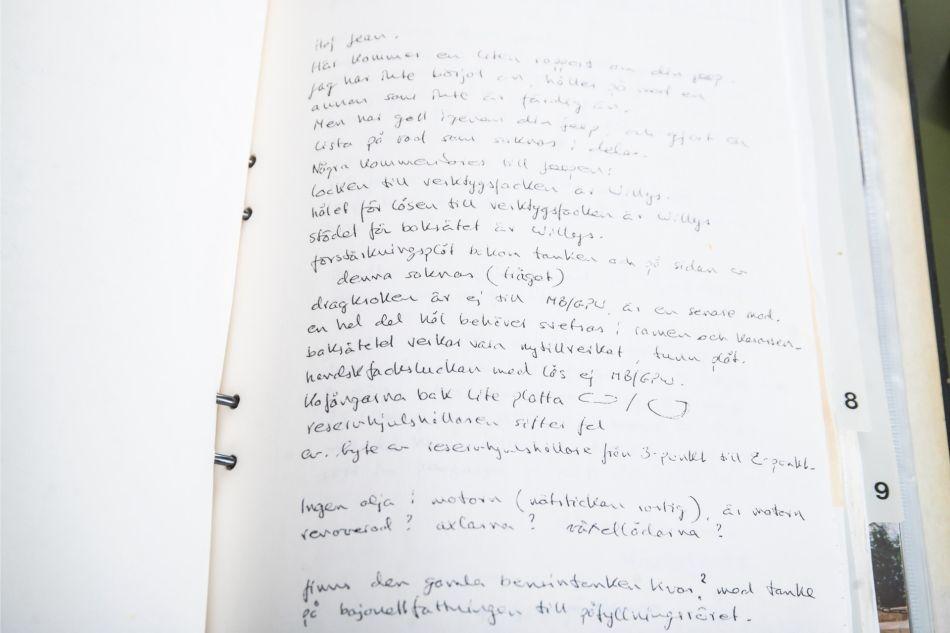 Hej Jean.
Här kommer en liten rapport om din jeep.
jag har inte börjat än, håller på med en
annan som inte är färdig än.
Men har gått igenom din jeep, och gjort en
lista på vad som saknas i delar.
Några kommentarer till jeepen:
locken till verktygsfacken är Willys.
hålet för låsen till verktygsfacken är Willys
stödet för baksätet är Willys.
förstärkningsplåt bakom tanken och på sidan av
denna saknas (tråget)
dragkroken är ej till MB/GPW, är en senare mod.
en hel del hål behöver svetsas i ramen och karossen.
baksätet verkar vara nytillverkat, tunn plåt.
handskfacksluckan med lås ej MB/GPW.
Kofångarna bak lite platta /
reservhjulshållaren sitter fel
ev. byte av reservhjulshållare från 3-punkt till 2-punkt.
Ingen olja i motorn (mätstickan rostig), är motorn
renoverad? axlarna? växellådorna?
finns den gamla bensintanken kvar? med tanke
på bajonettfattningen till påfyllningsröret.
8
9